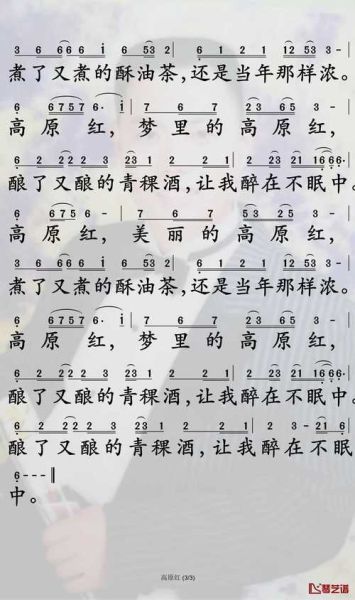 3 6 66 6 i 6 53 2 | 6 1 2 1 12 53 3 - |
煮了又煮的酥油茶,还是当年那样浓。
6 6757 6· i | 7 6 7 2 3 65 3 - |
高原红,梦里的高原红,
6 2 22 2 2 23 1 2 2 1 23 21 16 6·
酿了又酿的青稞酒,让我醉在不眠中。
6 675 6 - | 7 6 7 53 25 3 - |
高原红,美丽的高原红,
3 6 66 6 i 6 53 2 | 6 1 2 1 12 53 3 - |
煮了又煮的酥油茶,还是当年那样浓。
6 6757 6· i | 7 6 7 2 3 65 3 - |
高原红,梦里的高原红,
6 2 22 2 2 23 1 2 2 1 23 21 16 6·
酿了又酿的青稞酒,让我醉在不眠中。
6 2 22 2 2 23 1 | 2 2 1 2 3 - 21 6 |
酿了又酿的青稞酒,让我醉在不眠
6 - - - ‖
中。
高原红 (3/3)
琴艺谱